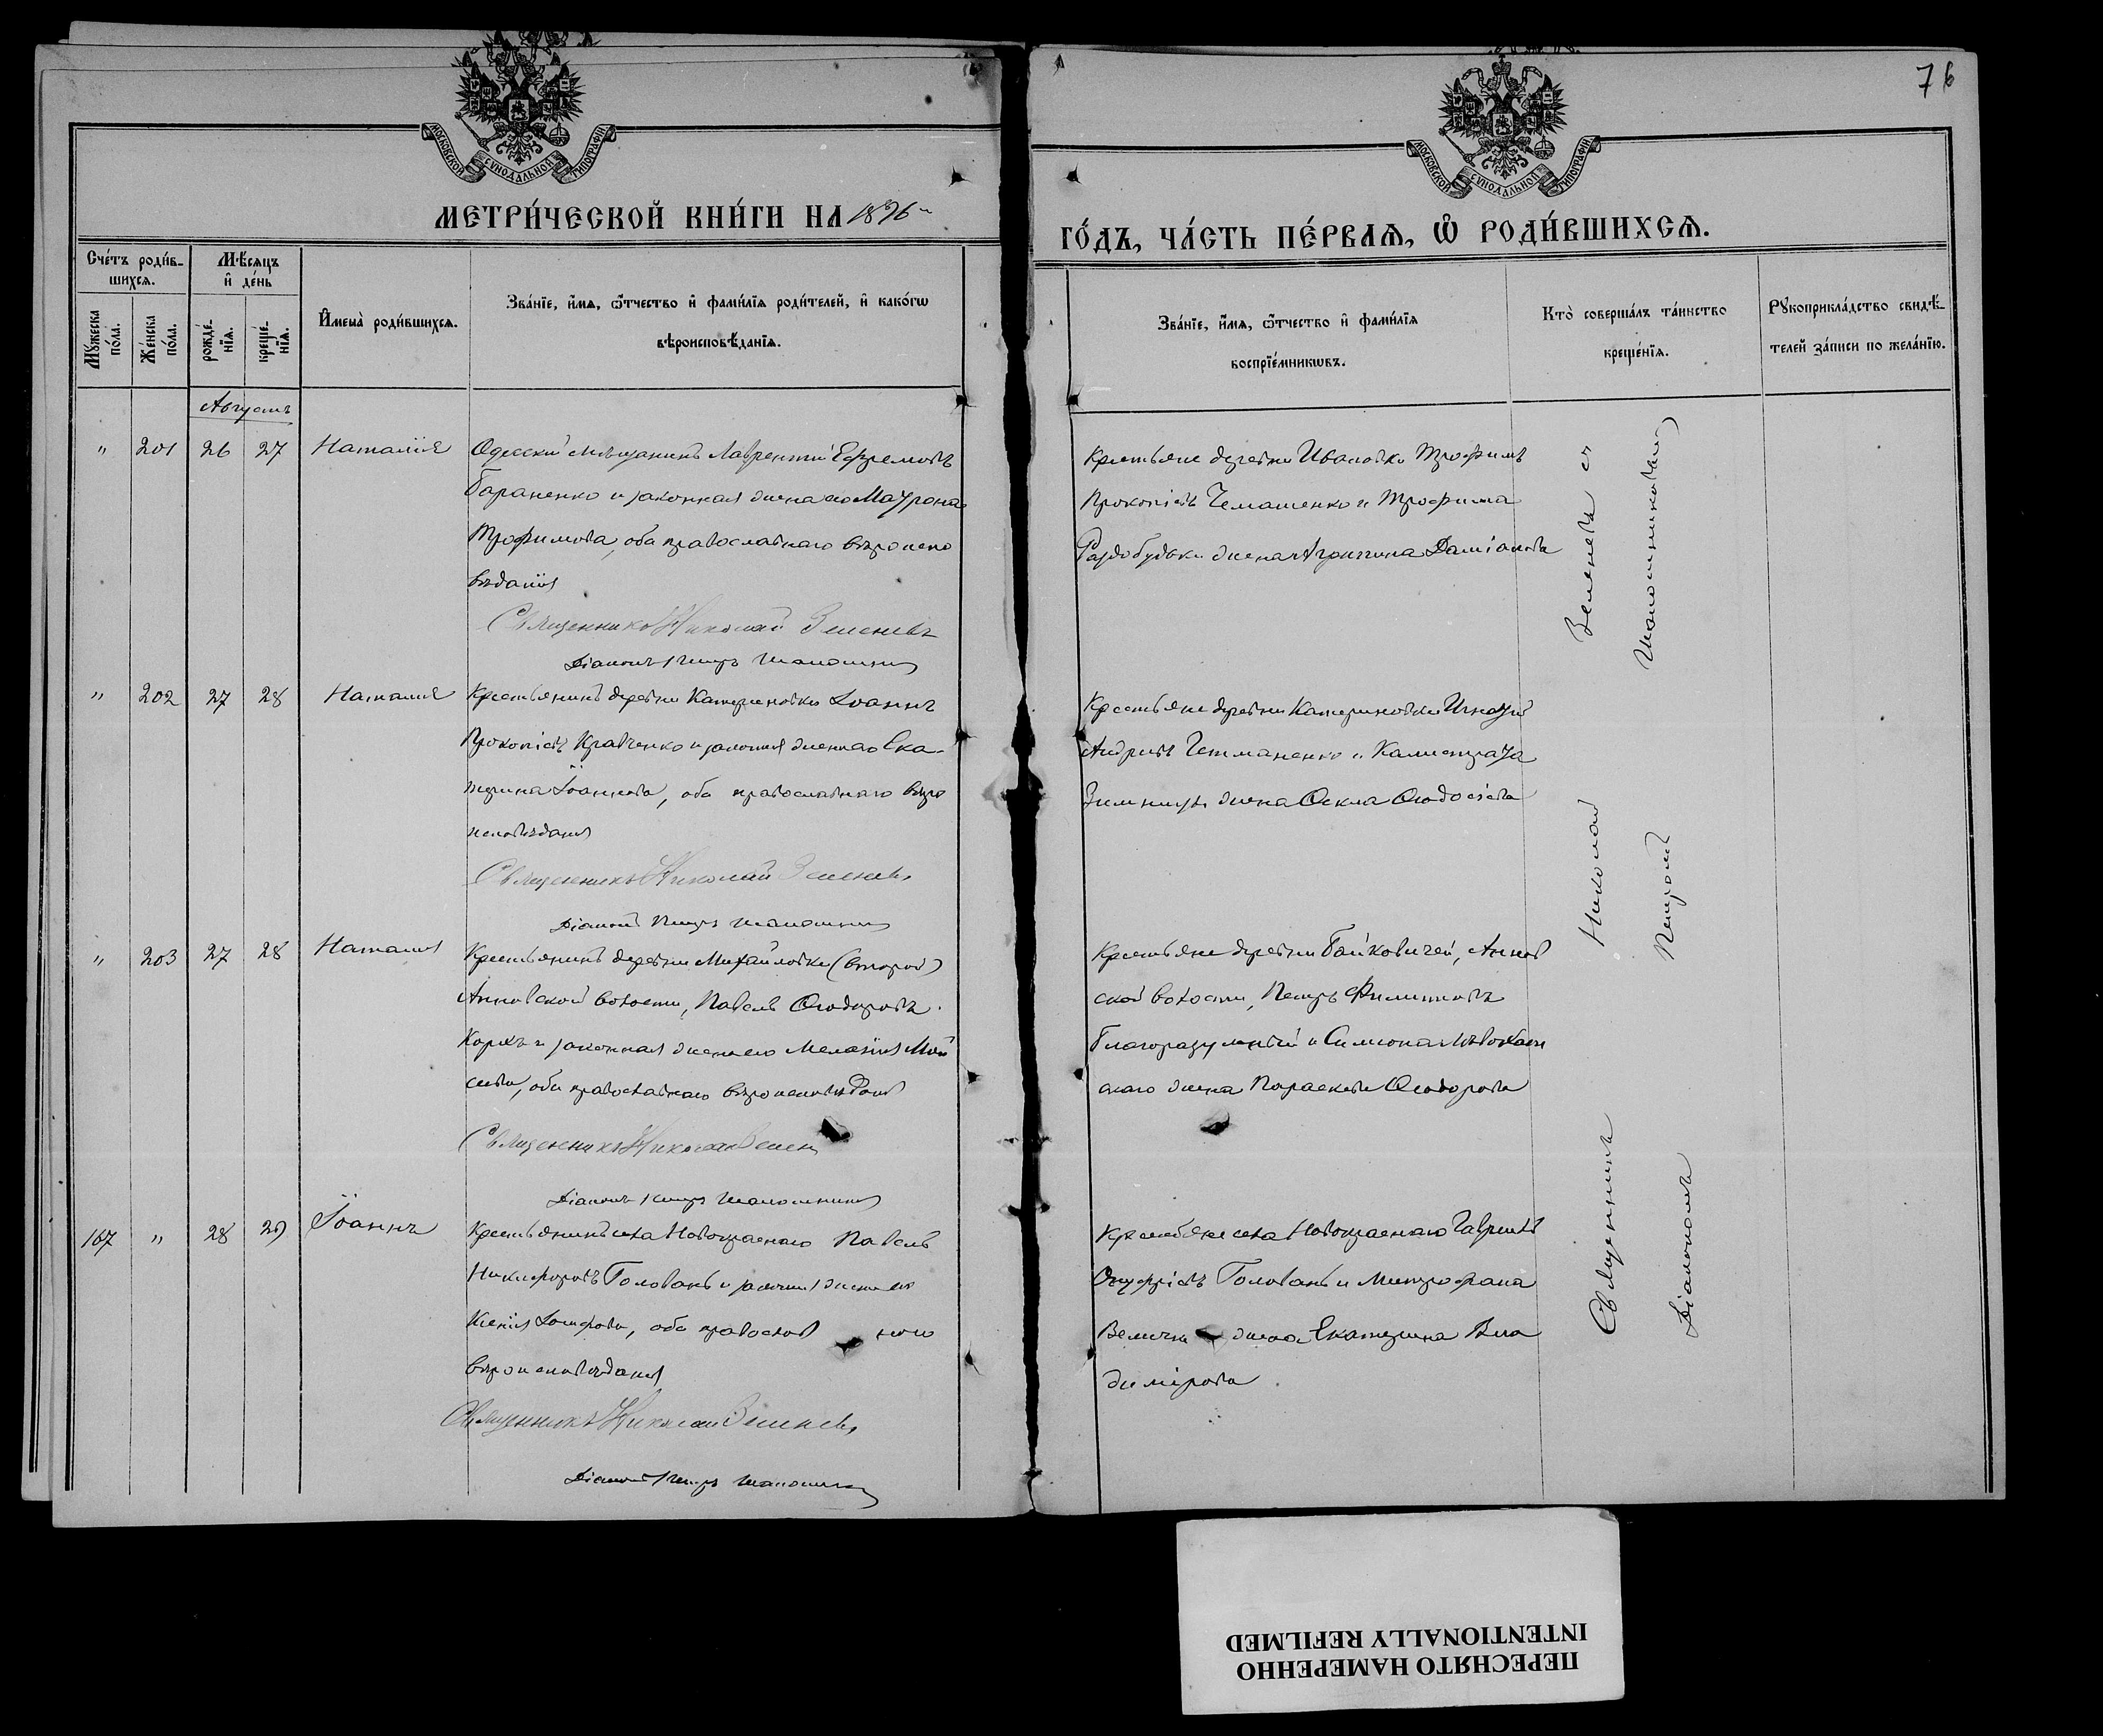 76
МОСКОВСКОЙ СУНОДАЛЬНОЙ ТИПОГРАФІИ
МОСКОВСКОЙ СУНОДАЛЬНОЙ ТИПОГРАФІИ
МЕТРИ́ЧЕСКОЙ КНИ́ГИ НА 1896
ГО́ДЪ, ЧА́СТЬ ПЕ́РВАЯ, Ѡ҆ РОДИ́ВШИХСЯ.
Сче́тъ роди́в-
шихся.
Му́жеска по́ла.
Же́нска по́ла.
Мѣ́сяцъ
и҆ де́нь
рожде́-нїя.
креще́-нїя.
И҆мена̀ роди́вшихся.
Зва́нїе, и҆́мя, ѻ҆́тчество и҆ фами́лїя роди́телей, и҆ како́гѡ
вѣроисповѣ́данїя.
Зва́нїе, и҆́мя, ѻ҆́тчество и҆ фами́лїя
воспрїе́мникѡвъ.
Кто̀ соверша́лъ та́инство
креще́нїя.
Рукоприкла́дство свидѣ́-
телей за́писи по жела́нїю.
Августъ
" 201 26 27 Наталія
Одесскій мѣщанинъ Лаврентій Ефремовъ
Бараненко и законная жена его Мавра
Трофимова, оба православнаго вѣроиспо
вѣданія
Священникъ Николай Зеленевъ
Діаконъ Петръ
Крестьяне деревни Ивановки Трофимъ
Прокопіевъ Чемашенко и Трофима
жена Агриппина Даміанова
" 202 27 28 Наталія
Крестьянинъ деревни Катериновки Іоаннъ
Прокопіевъ Кравченко и законная жена его Ека-
терина Іоаннова, оба православнаго вѣро
исповѣданія
Священникъ Николай Зеленевъ
Діаконъ Петръ
Крестьяне деревни Катериновки Игнатій
Андреевъ Гетманенко и Калистрата
жена Ѳекла Ѳеодосіева
" 203 27 28 Наталія
Крестьянинъ деревни Михайловки (второй)
Анновской волости, Павелъ Ѳеодоровъ
Коржъ и законная жена его Меланія Мои
сеева, оба православнаго вѣроисповѣданія
Священникъ Николай Зелен
Діаконъ Петръ
Крестьяне деревни Байковичей, Аннов
ской волости, Петръ Филипповъ
Благоразумный и Симеона
скаго жена Параскева Ѳеодорова
167 " 28 29 Іоаннъ
Крестьянинъ села Новокраснаго Павелъ
Никифоровъ Головань и законная жена его
Ксенія Іосифова, оба православ наго
вѣроисповѣданія
Священникъ Николай Зеленевъ
Діаконъ Петръ
Крестьяне села Новокраснаго Гавріилъ
Онуфріевъ Головань и Митрофана
жена Екатерина Вла
димірова
Священникъ Николай Зеленевъ съ
Діакономъ Петромъ
ПЕРЕСНЯТО НАМЕРЕННО
INTENTIONALLY REFILMED